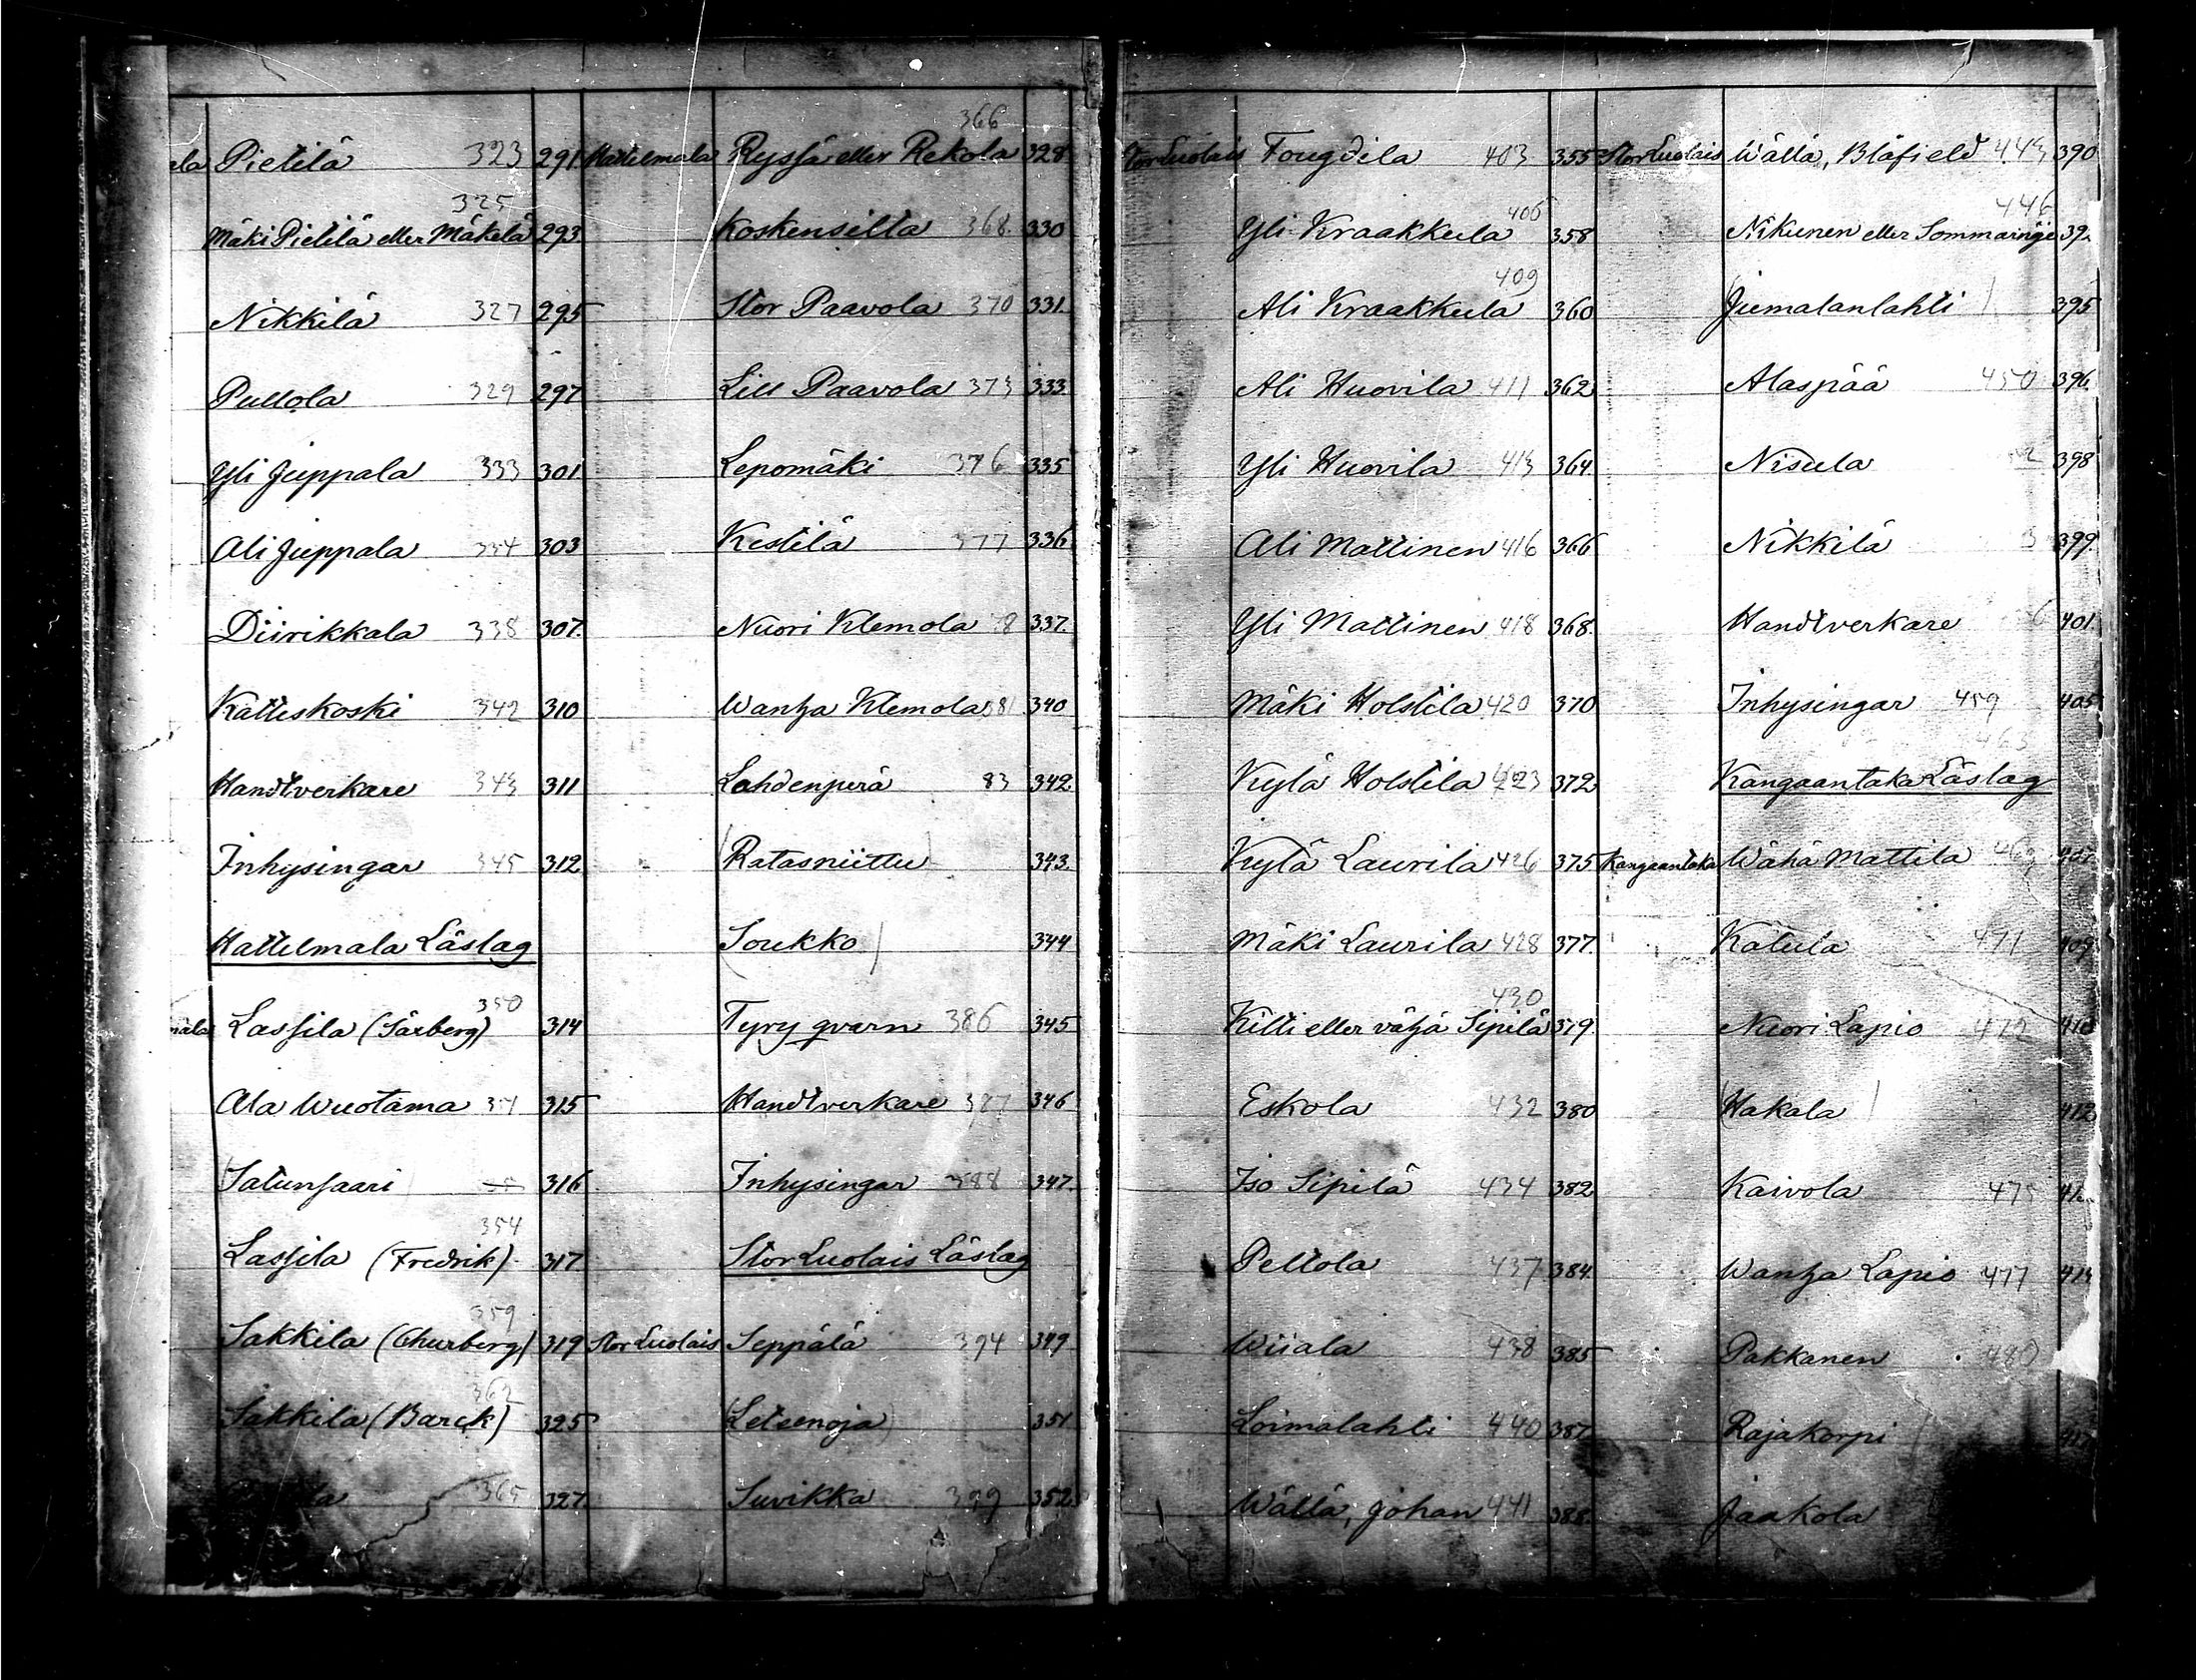 Pietilä 323 291
325
Mäki Pietilä eller Mäkelä 293
Nikkilä 327 295
Pullola 329 297
Yli Juppala 333 301
Ali Juppala 334 303
Diirikkala 338 307.
Katteskoski 342 310
Handtverkare 343 311
Inhysingar 345 312
Hattelmala Läslag
350
Lassila (Särberg) 314
Ala Wuotama 315
(Satunsaari) 316
354
Lassila (Fredrik) 317
359
Sakkila (Churberg) 319
362
Sakkila (Barck) 325
365 327
366
Hattelmala Ryssä eller Rekola 328
Koskensilta 368. 330
Stor Paavola 370 331.
Lill Paavola 373 333.
Lepomäki 376 335
Kestilä 377 336
Nuori Klemola 8 337.
Wanha Klemola 381 340
Lahdenperä 83 342
(Ratasniittu) 343.
(Soukko) 344
Tyry qvarn 386 345
Handtverkare 387 346
Inhysingar 388 347.
Stor Luolais Läslag
Stor Luolais Seppälä 394 349
(Letsenoja) 351
Suvikka 399 352
Stor Luolais Fougdila 403 355
406
Yli Kraakkula 358
409
Ali Kraakkula 360
Ali Huovila 411 362
Yli Huovila 413 364
Ali Mattinen 416 366
Yli Mattinen 418 368.
Mäki Holstila 420 370
Kylä Holstila 423 372
Kylä Laurila 426 375
Mäki Laurila 428 377.
430
Kilti eller vähä Sipilä 379.
Eskola 432 380
Iso Sipilä 434 382
Peltola 437 384.
Wiiala 438 385
Loimalahti 440 387
Wällä, Johan 441 388.
Stor Luolais Wällä, Blåfield 443 390
446
Nikunen eller Sommarnäje 392
(Jumalanlahti) 395
Alaspää 450 396.
Nisula 398
Nikkilä 3 399.
Handtverkare 6 401.
Inhysingar 459 405
463
Kangaantaka Läslag
Kangaantaka Wähä Mattila 407
Kätula 471 409
Nuori Lapio 472 410
(Hakala) 412
Kaivola 475
Wanha Lapio 477
Pakkanen 480
Rajakorpi
Jaakola